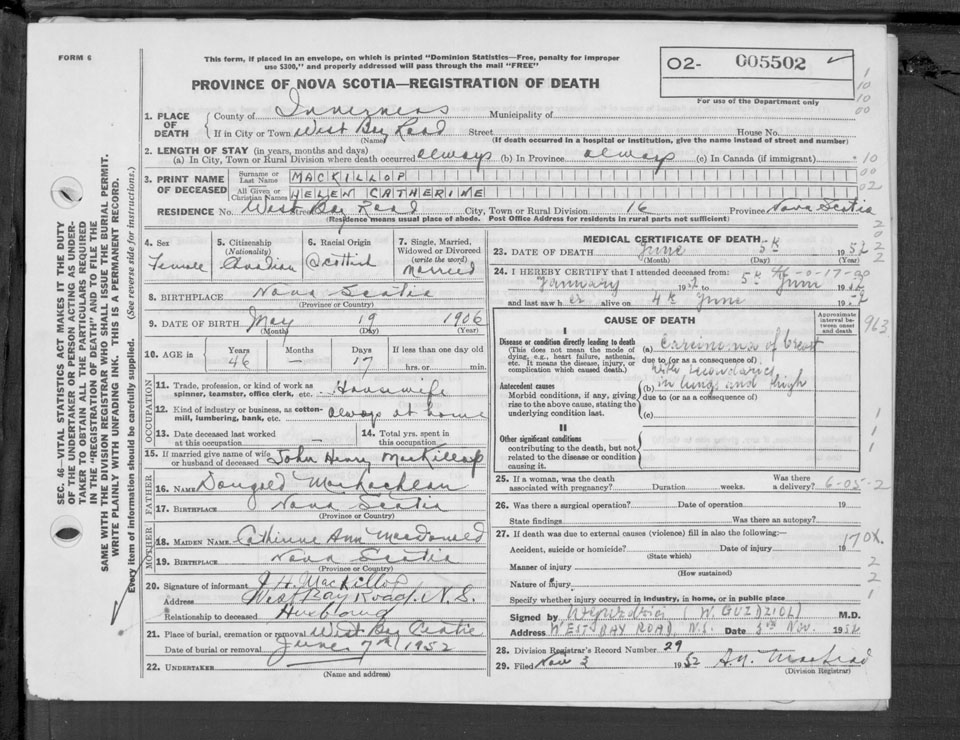 FORM 6
This form, if placed in an envelope, on which is printed "Dominion Statistics—Free, penalty for improper
use $300," and properly addressed will pass through the mail "FREE"
PROVINCE OF NOVA SCOTIA—REGISTRATION OF DEATH
02- 005502
For use of the Department only
1. PLACE OF DEATH
County of Inverness Municipality of
If in City or Town West Bay Road Street House No.
(Name) (If death occurred in a hospital or institution, give the name instead of street and number)
2. LENGTH OF STAY (in years, months and days)
(a) In City, Town or Rural Division where death occurred always (b) In Province always (c) In Canada (if immigrant)
3. PRINT NAME OF DECEASED
Surname or Last Name MACKILLOP
All Given or Christian Names HELEN CATHERINE
RESIDENCE No. West Bay Road Street City, Town or Rural Division 16 Province Nova Scotia
(Residence means usual place of abode. Post Office Address for residents in rural parts not sufficient)
4. Sex
Female
5. Citizenship
(Nationality)
Canadian
6. Racial Origin
Scottish
7. Single, Married,
Widowed or Divorced
(write the word)
Married
8. BIRTHPLACE Nova Scotia
(Province or Country)
9. DATE OF BIRTH May 19 1906
(Month) (Day) (Year)
10. AGE in
Years Months Days If less than one day old
46 - 17 hrs. or min.
OCCUPATION
11. Trade, profession, or kind of work as
spinner, teamster, office clerk, etc. Housewife
12. Kind of industry or business, as cotton-
mill, lumbering, bank, etc. always at home
13. Date deceased last worked
at this occupation
14. Total yrs. spent in
this occupation
15. If married give name of wife
or husband of deceased John Henry MacKillop
FATHER
16. NAME Dougald MacEachean
17. BIRTHPLACE Nova Scotia
(Province or Country)
MOTHER
18. MAIDEN NAME Catherine Ann Macdonald
19. BIRTHPLACE Nova Scotia
(Province or Country)
20. Signature of informant J H MacKillop
Address West Bay Road, N.S.
Relationship to deceased Husband
21. Place of burial, cremation or removal West Bay
Date of burial or removal June 7th 1952
22. UNDERTAKER
(Name and address)
MEDICAL CERTIFICATE OF DEATH
23. DATE OF DEATH June 5th 1952
(Month) (Day) (Year)
24. I HEREBY CERTIFY that I attended deceased from:
January 1952 to 5th June 1952
and last saw her alive on 4th June 1952
CAUSE OF DEATH
Approximate interval between onset and death
I
Disease or condition directly leading to death
(This does not mean the mode of
dying, e.g., heart failure, asthenia,
etc. It means the disease, injury, or
complication which caused death.)
(a) Carcinoma of breast
due to (or as a consequence of)
with secondaries
Antecedent causes
Morbid conditions, if any, giving
rise to the above cause, stating the
underlying condition last.
(b) in lungs and thigh
due to (or as a consequence of)
(c)
II
Other significant conditions
contributing to the death, but not
related to the disease or condition
causing it.
963
25. If a woman, was the death
associated with pregnancy? Duration weeks. Was there
a delivery? 6-05-2
26. Was there a surgical operation? Date of operation 19
State findings Was there an autopsy?
27. If death was due to external causes (violence) fill in also the following:
Accident, suicide or homicide? Date of injury 19
(State which)
170X.
Manner of injury
(How sustained)
Nature of injury
Specify whether injury occurred in industry, in home, or in public place
Signed by (W. GUZDZIOL) M.D.
Address WEST BAY ROAD, N.S. Date 3rd Nov. 1952
28. Division Registrar's Record Number 29
29. Filed Nov 3 1952
(Division Registrar)
SEC. 46—VITAL STATISTICS ACT MAKES IT THE DUTY
OF THE UNDERTAKER OR PERSON ACTING AS UNDER-
TAKER TO OBTAIN ALL THE PARTICULARS REQUIRED
IN THE "REGISTRATION OF DEATH" AND TO FILE THE
SAME WITH THE DIVISION REGISTRAR WHO SHALL ISSUE THE BURIAL PERMIT.
WRITE PLAINLY WITH UNFADING INK. THIS IS A PERMANENT RECORD.
Every item of information should be carefully supplied. (See reverse side for instructions.)